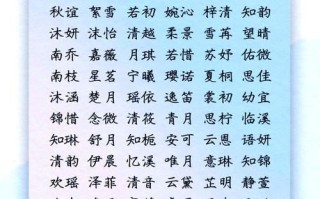 秋谊 絮雪 若初 婉沁 梓清 知韵
沐妍 沫怡 清越 柔景 雪苒 望晴
南乔 嘉薇 月琪 若惜 苏妤 佑微
南枝 星茗 宁曦 璎诺 夏桐 思佳
沐涵 楚月 瑶依 逸笛 裳初 幼宜
锦惜 念微 清筱 青月 思柠 临溪
知琳 舒月 知栀 安可 云恩 语妍
清韵 伊晨 忆溪 唯月 意琳 知锦
欢瑶 泽菲 清音 云黛 芷明 静萱